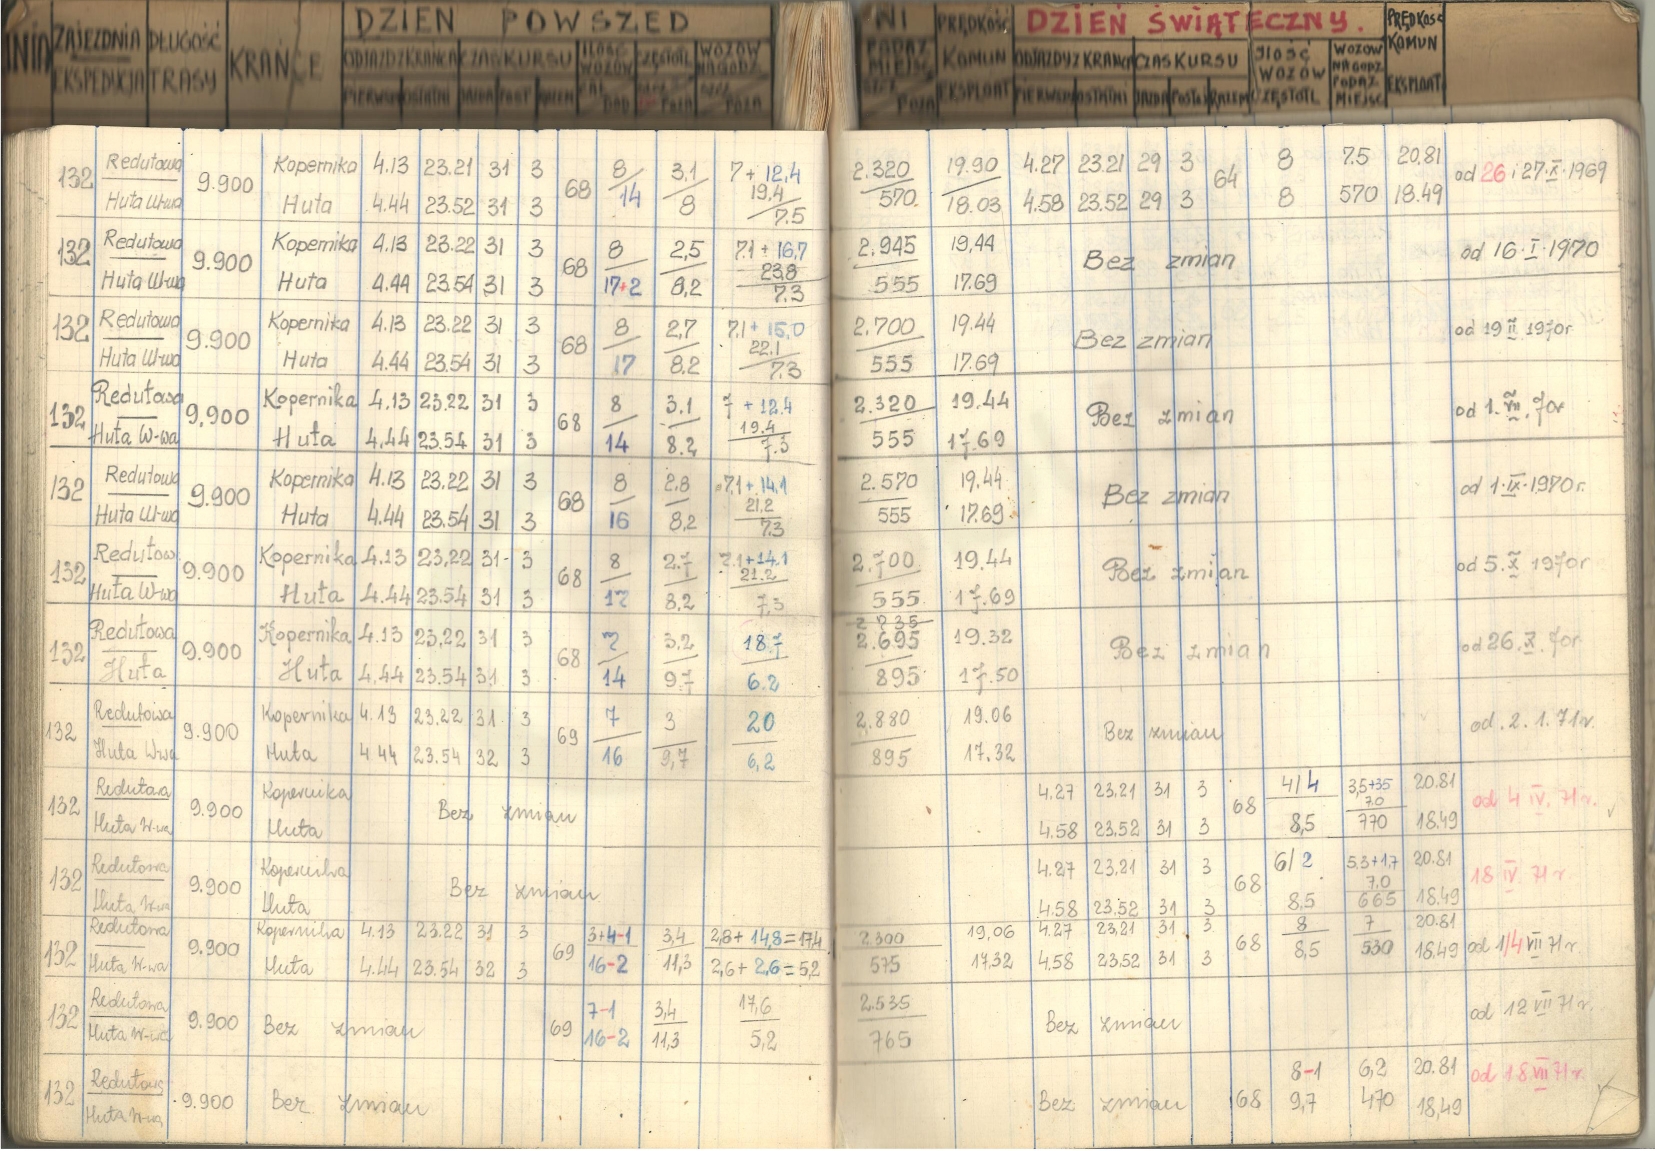 DZIEŃ POWSZEDNI PRĘDKOŚĆ DZIEŃ ŚWIĄTECZNY. PRĘDKOŚĆ
ZAJEZDNIA DŁUGOŚĆ KRAŃCE ODJAZD Z KRAŃCA CZAS KURSU ILOŚĆ WOZÓW CZĘSTOTL WOZÓW NA GODZ KOMUN ODJAZDY Z KRAŃCA CZAS KURSU ILOŚĆ WOZÓW WOZÓW NA GODZ KOMUN
EKSPEDYCJA TRASY PIERWSZY OSTATNI JAZDA POST RAZEM EKSPLOAT PIERWSZY OSTATNI JAZDA POSTÓJ RAZEM CZĘSTOTL PODAŻ MIEJSC EKSPLOAT
132 Redutowa 9.900 Kopernika 4.13 23.21 31 3 68 8 3,1 7+12,4 2.320 19.90 4.27 23.21 29 3 64 8 7.5 20.81 od 26 i 27.X.1969
19.4
Huta W-wa Huta 4.44 23.52 31 3 14 8 7.5 570. 18.03 4.58 23.52 29 3 8 570 18.49
132 Redutowa 9.900 Kopernika 4.13 23.22 31 3 68 8 2,5 7.1+16,7 2.945 19,44 Bez zmian od 16.I.1970
23,8
Huta W-wa Huta 4.44 23.54 31 3 17+2 8,2 7.3 555 17.69
132 Redutowa 9.900 Kopernika 4.13 23.22 31 3 68 8 2,7 7,1+15,0 2.700 19.44 Bez zmian od 19 II 1970r
22,1
Huta W-wa Huta 4.44 23.54 31 3 17 8.2 7.3 555 17.69
132 Redutowa 9,900 Kopernika 4.13 23.22 31 3 68 8 3.1 7+12.4 2.320 19.44 Bez zmian od 1.VII.70r
19.4
Huta W-wa Huta 4.44 23.54 31 3 14 8.2 7.3 555 17.69
132 Redutowa 9.900 Kopernika 4.13 23.22 31 3 68 8 2,8 7,1+14,1 2.570 19.44 Bez zmian od 1.IX.1970r.
21,2
Huta W-wa Huta 4.44 23.54 31 3 16 8,2 7.3 555 17.69
132 Redutow 9.900 Kopernika 4.13 23,22 31 3 68 8 2.7 7.1+14.1 2.700 19.44 Bez zmian od 5.X 1970r
21.2
Huta W-wa Huta 4.44 23.54 31 3 17 8,2 7,3 555 17.69
132 Redutowa 9.900 Kopernika 4.13 23,22 31 3 68 7 3,2 18.7 2.695 19.32 Bez zmian od 26.X.70r
Huta Huta 4.44 23.54 31 3 14 9.7 6.2 895 17.50
132 Redutowa 9.900 Kopernika 4.13 23.22 31 3 69 7 3 20 2.880 19.06 Bez zmian od. 2.1.71r.
Huta Wwa Huta 4 44 23.54 32 3 16 9,7 6,2 895 17.32
132 Redutowa 9.900 Kopernika Bez zmian 4.27 23.21 31 3 68 4/4 3,5+35 20.81 od 4 IV. 71r.
7.0
Huta W-wa Huta 4.58 23.52 31 3 8,5 770 18.49
132 Redutowa 9.900 Kopernika Bez zmian 4.27 23,21 31 3 68 6/2 5.3+1,7 20.81 18 IV 71r.
7,0
Huta W-wa Huta 4.58 23.52 31 3 8.5 665 18.49
132 Redutowa 9.900 Kopernika 4.13 23.22 31 3 69 3+4-1 3,4 2,8+14,8=17,4 2.300 19,06 4.27 23,21 31 3 68 8 7 20.81 od 1/4 VII 71r.
Huta W-wa Huta 4.44 23.54 32 3 16-2 11,3 2,6+2,6=5,2 575 17.32 4.58 23.52 31 3 8,5 530 18.49
132 Redutowa 9.900 Bez zmian 69 7-1 3,4 17,6 2.535 Bez zmian od 12 VII 71r.
Huta W-wa 16-2 11,3 5,2 765
132 Redutowa 9.900 Bez zmian Bez zmian 68 8-1 6,2 20.81 od 18 VII 71r.
Huta W-wa 9,7 470 18,49